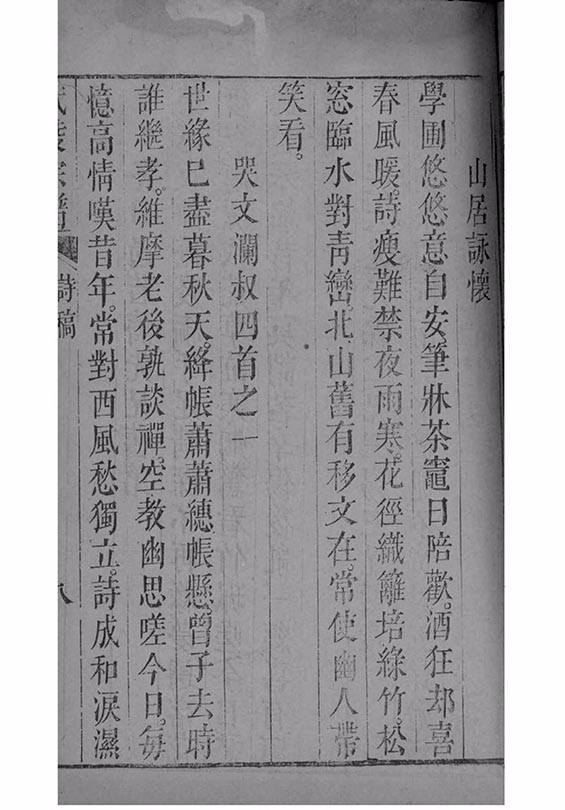 山居詠懷
學圃悠悠意自安。筆牀茶竈日陪歡。酒狂却喜
春風暖。詩瘦難禁夜雨寒。花徑織籬培綠竹。松
窓臨水對靑巒。北山舊有移文在。常使幽人帶
笑看。
哭文瀾叔四首之一
世緣已盡暮秋天。絳帳蕭蕭穗帳懸。曾子去時
誰繼孝。維摩老後孰談禪。空教幽思嗟今日。每
憶高情嘆昔年。常對西風愁獨立。詩成和淚濕
宗譜 詩稿 八